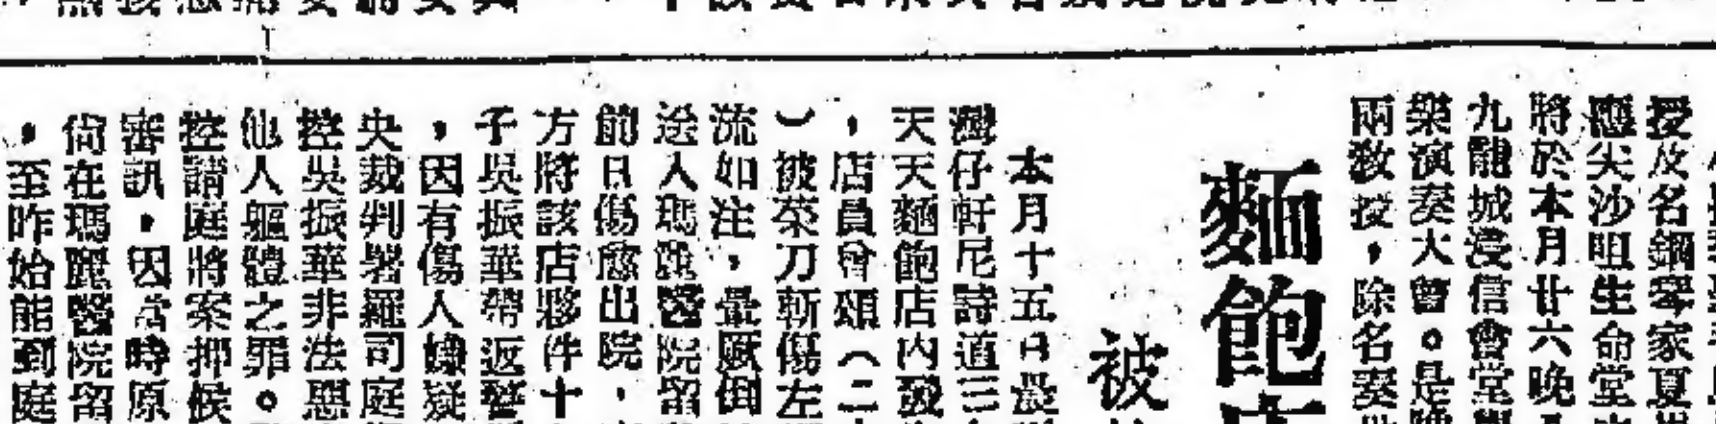 授及名鋼琴家夏
應尖沙咀生命堂
將於本月廿六晚
九龍城浸信會堂
樂演奏大會。是晚
兩教授，除名奏
麵飽
被
本月十五日晨
灣仔軒尼詩道三
天天麵飽店內發
，店員曾頌（二
）被菜刀斬傷左
流如注，暈厥倒
送入瑪麗醫院留
前日傷愈出院，
方將該店夥件十
子吳振華帶返警
，因有傷人嫌疑
央裁判署羅司庭
控吳振華非法惡
他人軀體之罪。
控請庭將案押候
審訊，因當時原
尙在瑪麗醫院留
，至昨始能到庭